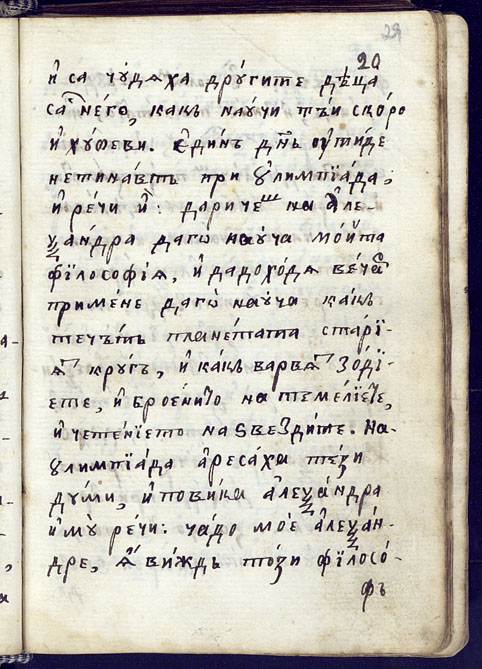 29
20
и҆ са чꙋ́дѧха дрꙋ́гите дѣ́ца
са не́го, какъ наꙋ́чи тъ́и ско́ро
и҆ хꙋ́беви. е҆ди́нъ дн҃ь ѿи́де
нетина́въ при ѻ҆лимпїа́да,
и҆ ре́чи и҆̀: дариче́ш на а҆ле-
ѯа́ндра даго̀ наꙋ́ча мо́йта
фїлософі́ѧ, и҆ дадохо́дѧ ве́ча
приме́не даго̀ наꙋ́ча ка́къ
течъ́тъ плане́тата ста́рї-
ѧ крꙋ́гъ, и҆ ка́къ варвѧ́ зо́дї-
ете, и҆ брое́нито на теме́лїете,
и҆ чете́нїето на ѕвезди́те. На
ѻ҆лимпїа́да а҆реса́ха те́зи
дꙋ́ми, и҆ пови́ка а҆леѯа́ндра
и҆ мꙋ̀ ре́чи: ча́до мо́е а҆леѯа́н-
дре, ѧ҆̀ ви́ждь то́зи фїлосо́-
фъ